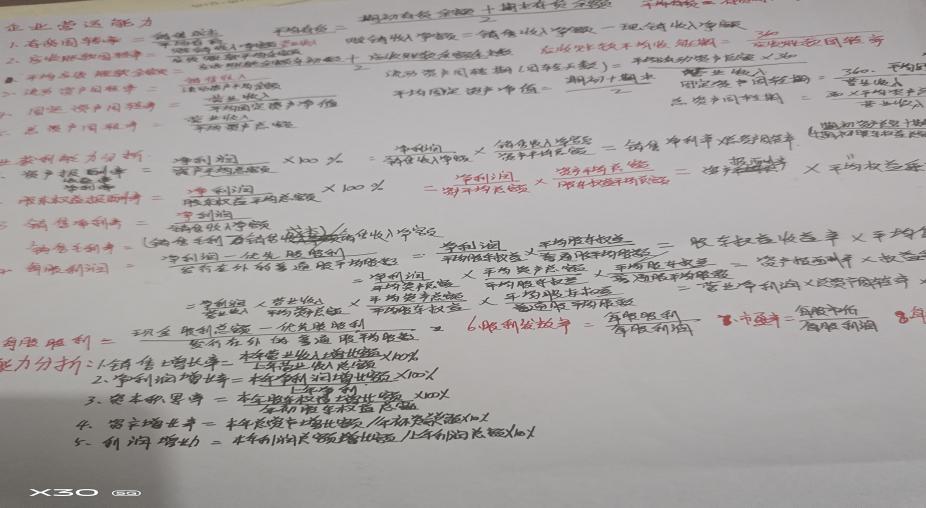 企业营运能力
1. 存货周转率 = 销售成本 / 平均存货 平均存货 = 期初存货余额 + 期末存货余额 / 2
2. 应收账款周转率 = 赊销收入净额 赊销收入净额 = 销售收入净额 - 现销收入净额
应收账款平均收账期 = 360 / 应收账款周转率
平均应收账款余额 = 应收账款余额年初数 + 应收账款余额年末数 / 2
3. 流动资产周转率 = 销售收入 / 流动资产平均余额 流动资产周转期(周转天数) = 平均流动资产总额 × 360 / 营业收入
固定资产周转率 = 营业收入 / 平均固定资产净值 平均固定资产净值 = 期初 + 期末 / 2 固定资产周转期 = 360 · 平均固 / 营业收入
总资产周转率 = 营业收入 / 平均资产总额 总资产周转期 = × 平均资产总 / 营业收入
获利能力分析:
资产报酬率 = 净利润 / 资产平均总额 × 100% = 净利润 / 销售收入净额 × 销售收入净额 / 资产平均总额 = 销售净利率 × 总资产周转率
股东权益报酬率 = 净利润 / 股东权益平均总额 × 100% = 净利润 / 资产平均总额 × 资产平均总额 / 股东权益平均总额 = 资产报酬率 × 平均权益乘
3 销售净利率 = 净利润 / 销售收入净额
销售毛利率 = 销售毛利 / 销售收入净额
每股利润 = 净利润 - 优先股股利 / 发行在外的普通股平均股数 = 净利润 / 平均股东权益 × 平均股东权益 / 普通股平均股数 = 股东权益收益率 × 平均每
= 净利润 / 平均资产总额 × 平均资产总额 / 平均股东权益 × 平均股东权益 / 普通股平均股数 = 资产报酬率 × 权益
= 净利润 / 营业收入 × 营业收入 / 平均资产总额 × 平均资产总额 / 平均股东权益 × 平均股东权益 / 普通股平均股数 = 营业净利润 × 总资产周转率 ×
每股股利 = 现金股利总额 - 优先股股利 / 发行在外的普通股平均股数 6. 股利发放率 = 每股股利 / 每股利润 7. 市盈率 = 每股市价 / 每股利润 8. 每
能力分析: 1. 销售增长率 = 本年营业收入增长额 / 上年营业收入总额 × 100%
2. 净利润增长率 = 本年净利润增长额 / 上年净利 × 100%
3. 资本积累率 = 本年股东权益增长额 / 年初股东权益总额 × 100%
4. 资产增长率 = 本年总资产增长额 / 年初资产总额 × 100%
5. 利润增长力 = 本年利润总额增长额 / 上年利润总额 × 100%
X30 5G